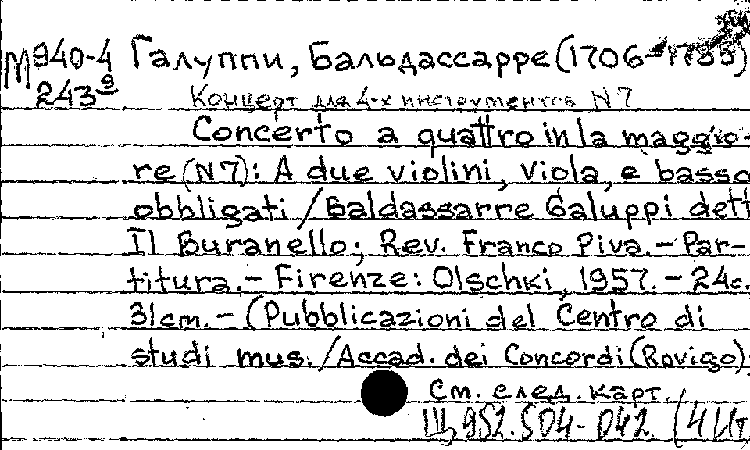 М940-4 Галуппи, Бальдассарре (1706-1785)
243⁹ Концерт для 4-х инструментов N7
Concerto a quattro in la maggio-
re (N7): A due violini, viola, e basso
obbligati / Baldassarre Galuppi dett
Il Buranello; Rev. Franco Piva. - Par-
titura. - Firenze: Olschki, 1957. - 24с.
31cm. - (Pubblicazioni del Centro di
studi mus. / Accad. dei Concordi (Rovigo);
См. след. карт.
Щ 952.504-042. (4Ит